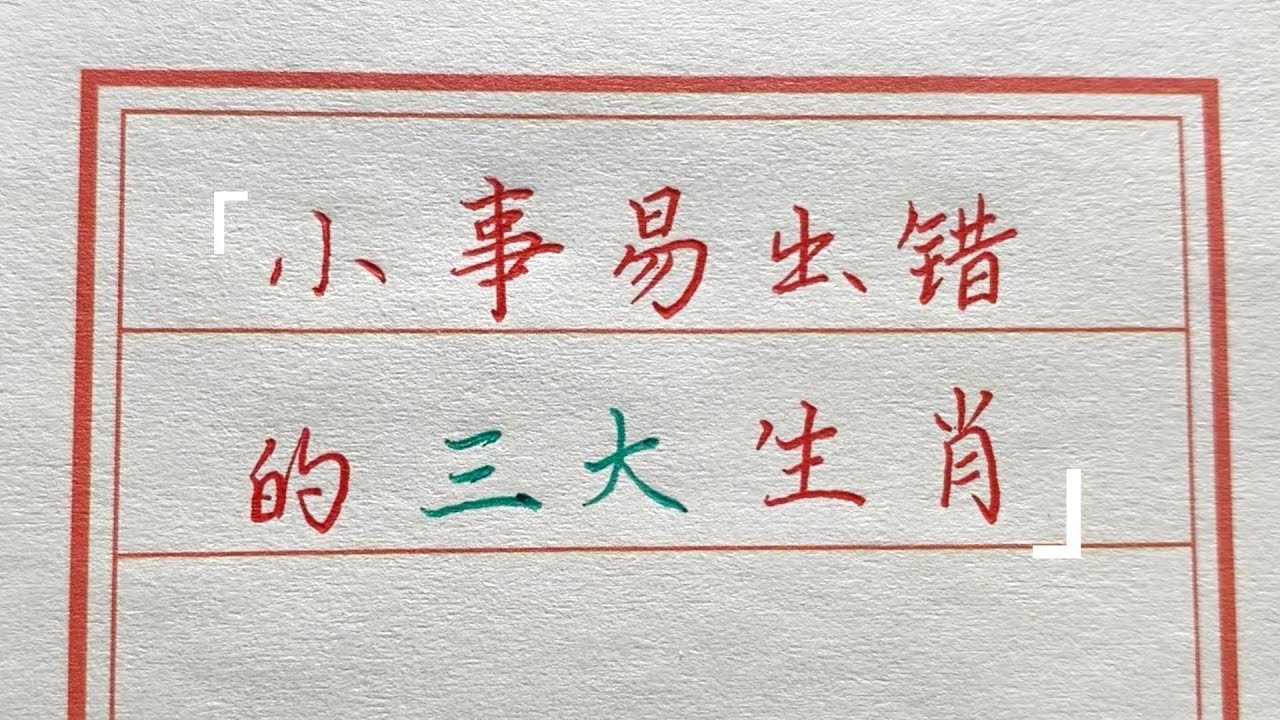 「小事易出错
的三大生肖」